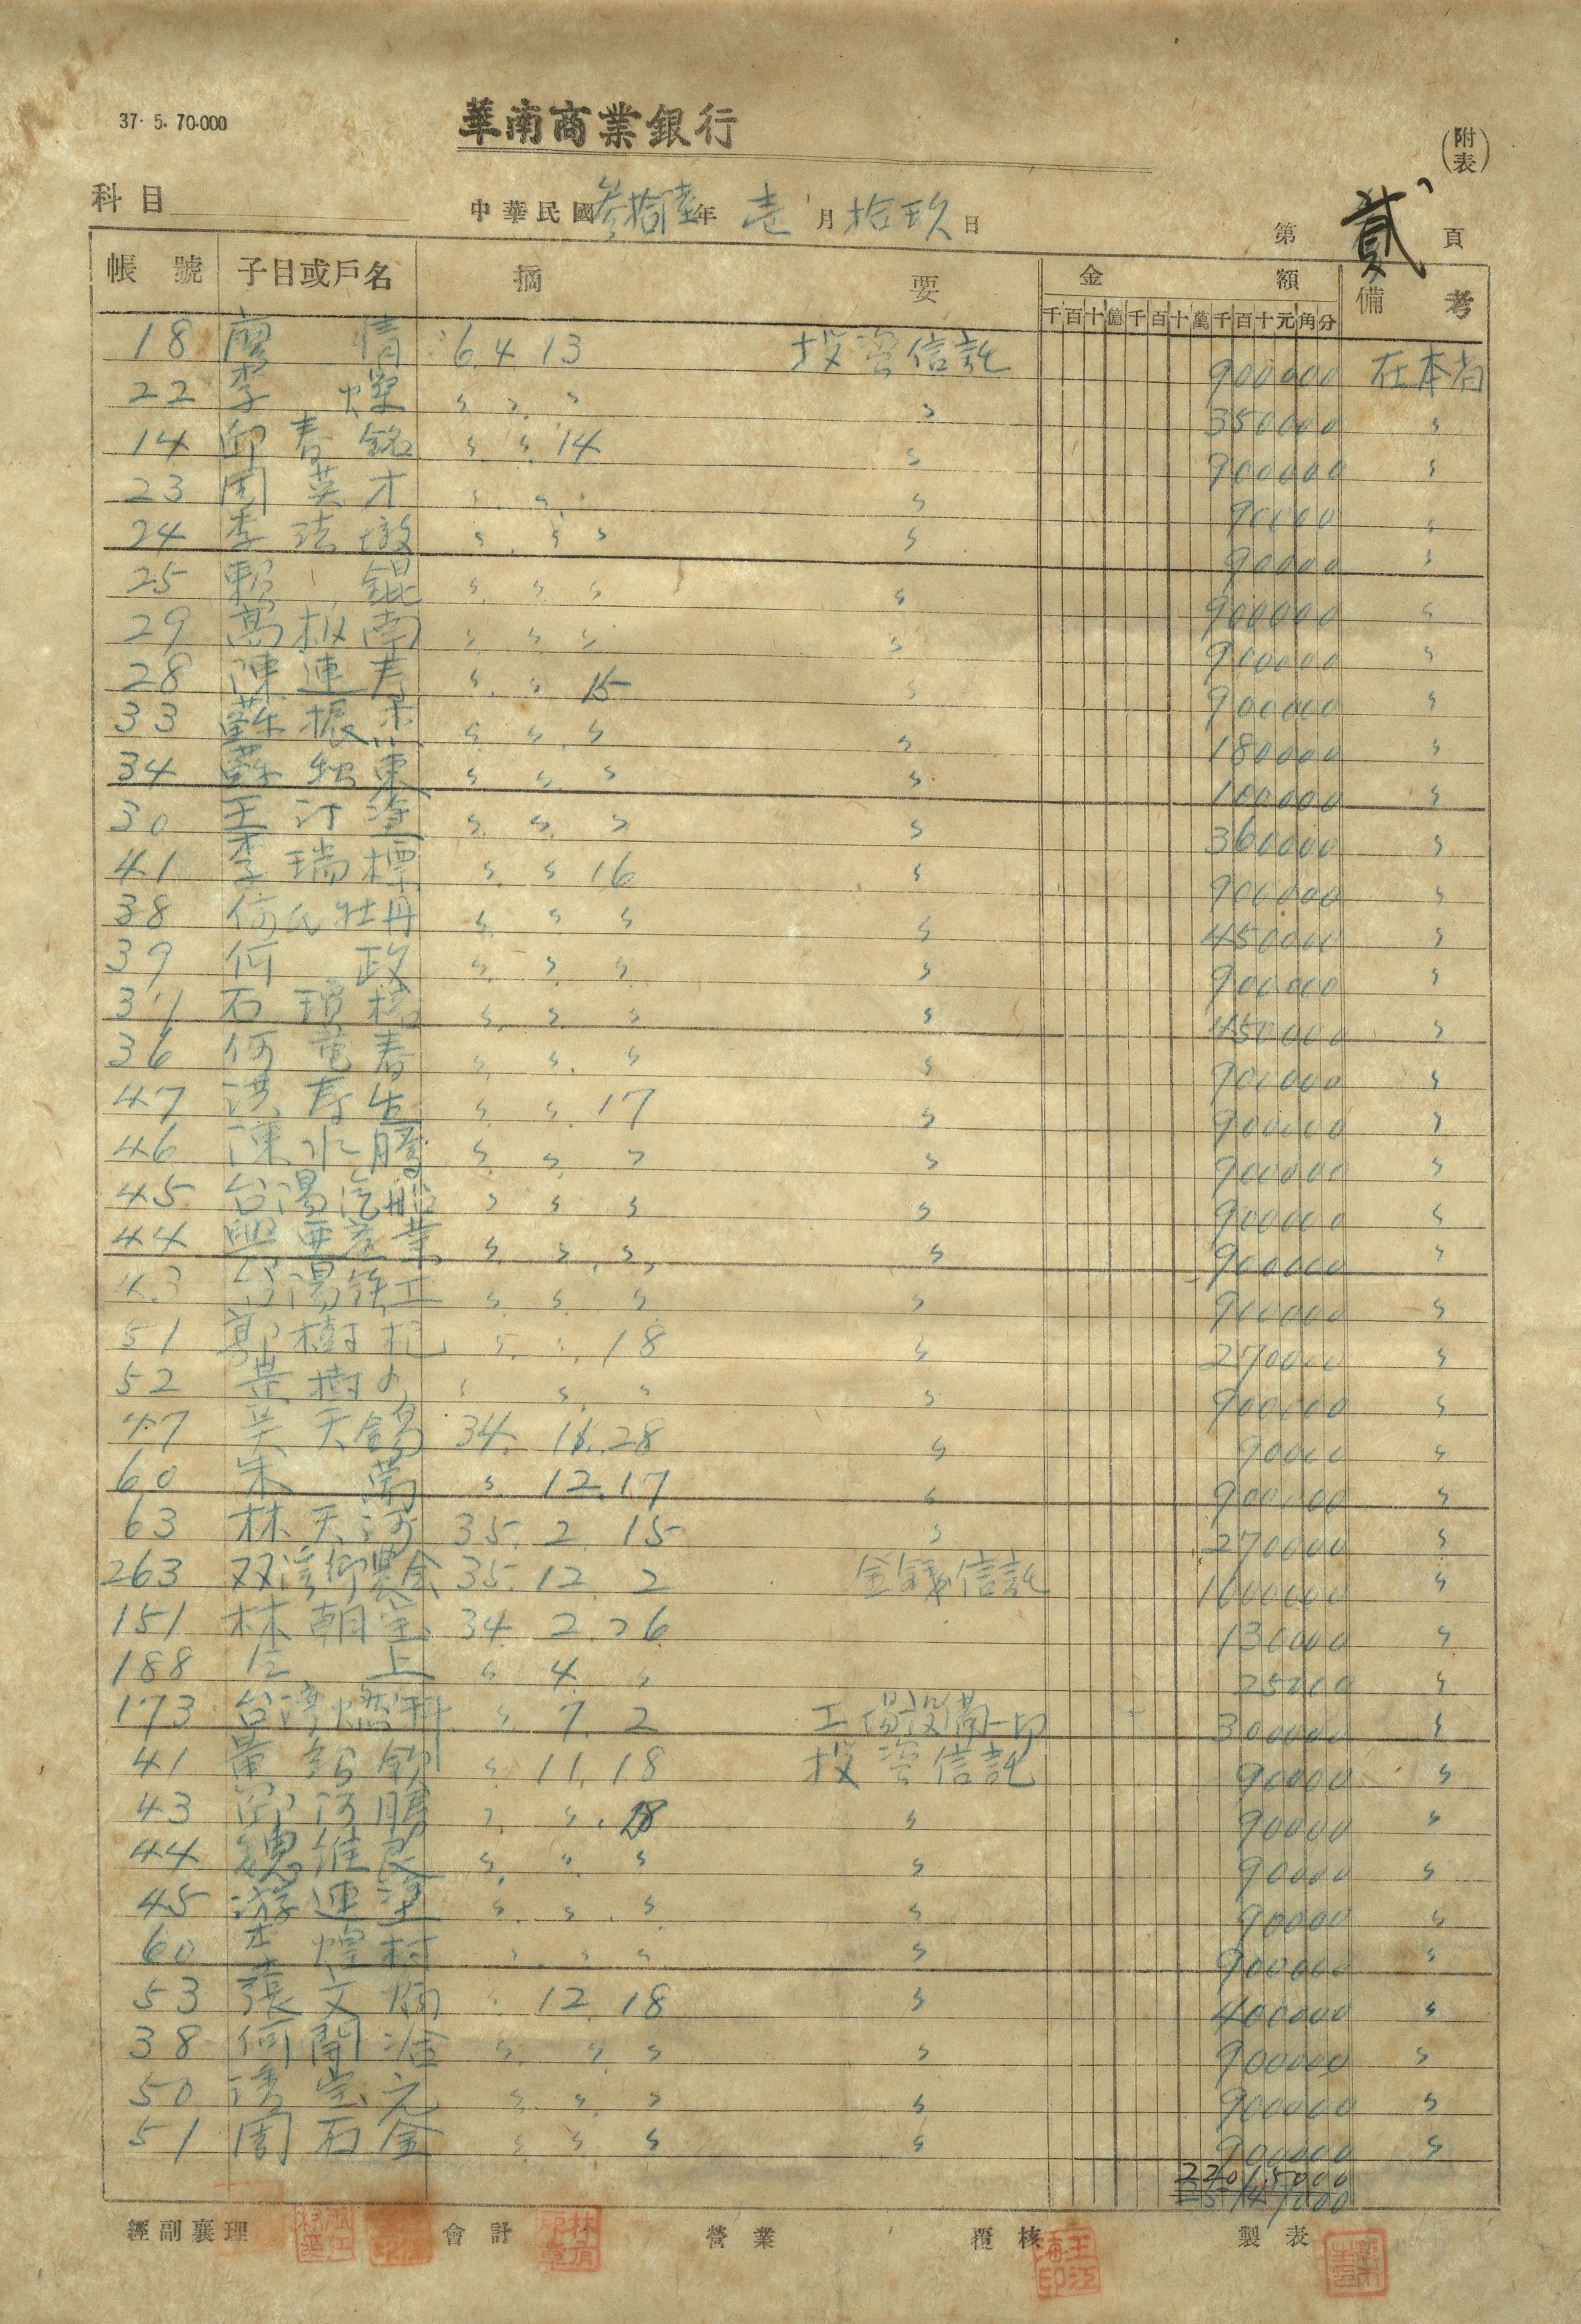 37. 5. 70.000
華南商業銀行
(附表)
科目 中華民國叁拾陸年壱月拾玖日 第貳頁
帳號 子目或戶名 摘要 金額 備考
千百十億千百十萬千百十元角分
18 廖 情 6.4 13 投資信託 900000 在本省
22 李 燦 〃 〃 〃 〃 350000 〃
14 邱春銘 〃 〃 14 〃 900000 〃
23 周英才 〃 〃 〃 〃 90000 〃
24 李法墩 〃 〃 〃 〃 90000 〃
25 賴 錕 〃 〃 〃 〃 900000 〃
29 萬板南 〃 〃 〃 〃 900000 〃
28 陳連春 〃 〃 15 〃 900000 〃
33 蘇振 〃 〃 〃 〃 180000 〃
34 蘇 東 〃 〃 〃 〃 100000 〃
30 王汀塗 〃 〃 〃 〃 360000 〃
41 李瑞標 〃 〃 16 〃 900000 〃
38 何氏牡丹 〃 〃 〃 〃 450000 〃
39 何 政 〃 〃 〃 〃 900000 〃
37 石 〃 〃 〃 〃 450000 〃
36 何 春 〃 〃 〃 〃 900000 〃
47 洪寿生 〃 〃 17 〃 900000 〃
46 陳水騰 〃 〃 〃 〃 900000 〃
45 台湯汽船 〃 〃 〃 〃 900000 〃
44 興亜產業 〃 〃 〃 〃 900000 〃
43 台湯鉄工 〃 〃 〃 〃 900000 〃
51 郭樹 〃 〃 18 〃 270000 〃
52 黃樹 〃 〃 〃 〃 900000 〃
47 吳天錫 34. 11. 28 〃 90000 〃
60 朱 萬 〃 12. 17 〃 900000 〃
63 林天河 35. 2. 15 〃 270000 〃
263 双溪鄉農会 35. 12. 2 金錢信託 1600000 〃
151 林朝 34. 2. 26 130000 〃
188 仝 上 〃 4. 〃 25000 〃
173 台湾燃料 〃 7. 2 工場設備一切 300000 〃
41 黃 欽 〃 11. 18 投資信託 90000 〃
43 邱河鵬 〃 〃. 28 〃 90000 〃
44 魏維良 〃 〃 〃 〃 90000 〃
45 游連塗 〃 〃 〃 〃 90000 〃
60 李煌村 〃 〃 〃 〃 900000 〃
53 張文炳 〃 12. 18 〃 400000 〃
38 何開 〃 〃 〃 〃 900000 〃
50 〃 〃 〃 〃 900000 〃
51 周石金 〃 〃 〃 〃 900000 〃
22015000
經副襄理 會計 營業 覆核 製表